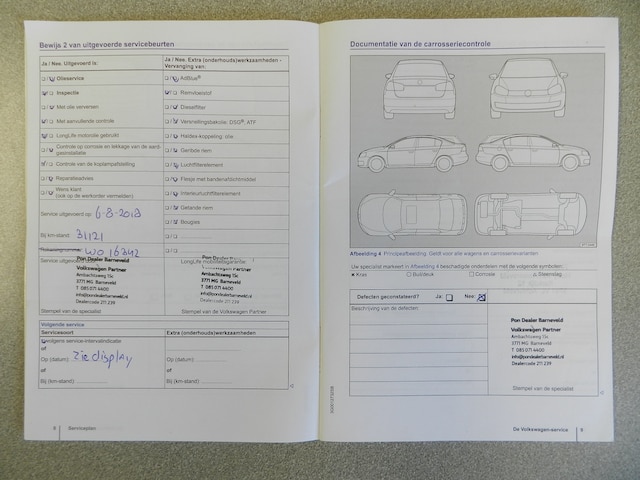 Bewijs 2 van uitgevoerde servicebeurten
Ja / Nee. Uitgevoerd is:
Olieservice
Inspectie
Met olie verversen
Met aanvullende controle
LongLife motorolie gebruikt
Controle op corrosie en lekkage van de aard-
gasinstallatie
Controle van de koplampafstelling
Reparatieadvies
Wens klant
(ook op de werkorder vermelden)
Service uitgevoerd op: 6-8-2018
Bij km-stand: 31121
WO 16342
Service uitgevoerd door
Pon Dealer Barneveld
Volkswagen Partner
Ambachtsweg 15c
3771 MG Barneveld
T 085 071 4400
info@pondealerbarneveld.nl
Dealercode 211 239
Stempel van de specialist
Ja / Nee. Extra (onderhouds)werkzaamheden -
Vervanging van:
AdBlue®
Remvloeistof
Dieselfilter
Versnellingsbakolie: DSG®, ATF
Haldex-koppeling: olie
Geribde riem
Luchtfilterelement
Flesje met bandenafdichtmiddel
Interieurluchtfilterelement
Getande riem
Bougies
LongLife mobiliteitsgarantie:
Pon Dealer Barneveld
Volkswagen Partner
Ambachtsweg 15c
3771 MG Barneveld
T 085 071 4400
info@pondealerbarneveld.nl
Dealercode 211 239
Stempel van de Volkswagen Partner
Volgende service
Servicesoort
Extra (onderhouds)werkzaamheden
Eerstgens service-intervalindicatie
of
Op (datum): zie display
of
Bij (km-stand):
Op (datum):
of
Bij (km-stand):
8 Serviceplan
Documentatie van de carrosseriecontrole
Afbeelding 4 Principeafbeelding. Geldt voor alle wagens en carrosserievarianten
Uw specialist markeert in Afbeelding 4 beschadigde onderdelen met de volgende symbolen:
Kras
Buil/deuk
Corrosie
Steenslag
Defecten geconstateerd? Ja: Nee:
Beschrijving van de defecten:
Pon Dealer Barneveld
Volkswagen Partner
Ambachtsweg 15c
3771 MG Barneveld
T 085 071 4400
info@pondealerbarneveld.nl
Dealercode 211 239
Stempel van de specialist
De Volkswagen-service 9